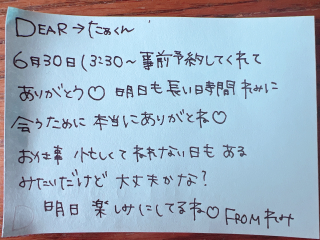 DEAR→たぁくん
6月30日 13:30～事前予約してくれて
ありがとう♡ 明日も長い日時間 れみに
会うために 本当にありがとね♡
お仕事 忙しくて ねれない日も ある
みたいだけど 大丈夫かな?
明日 楽しみにしてるね♡ FROM れみ